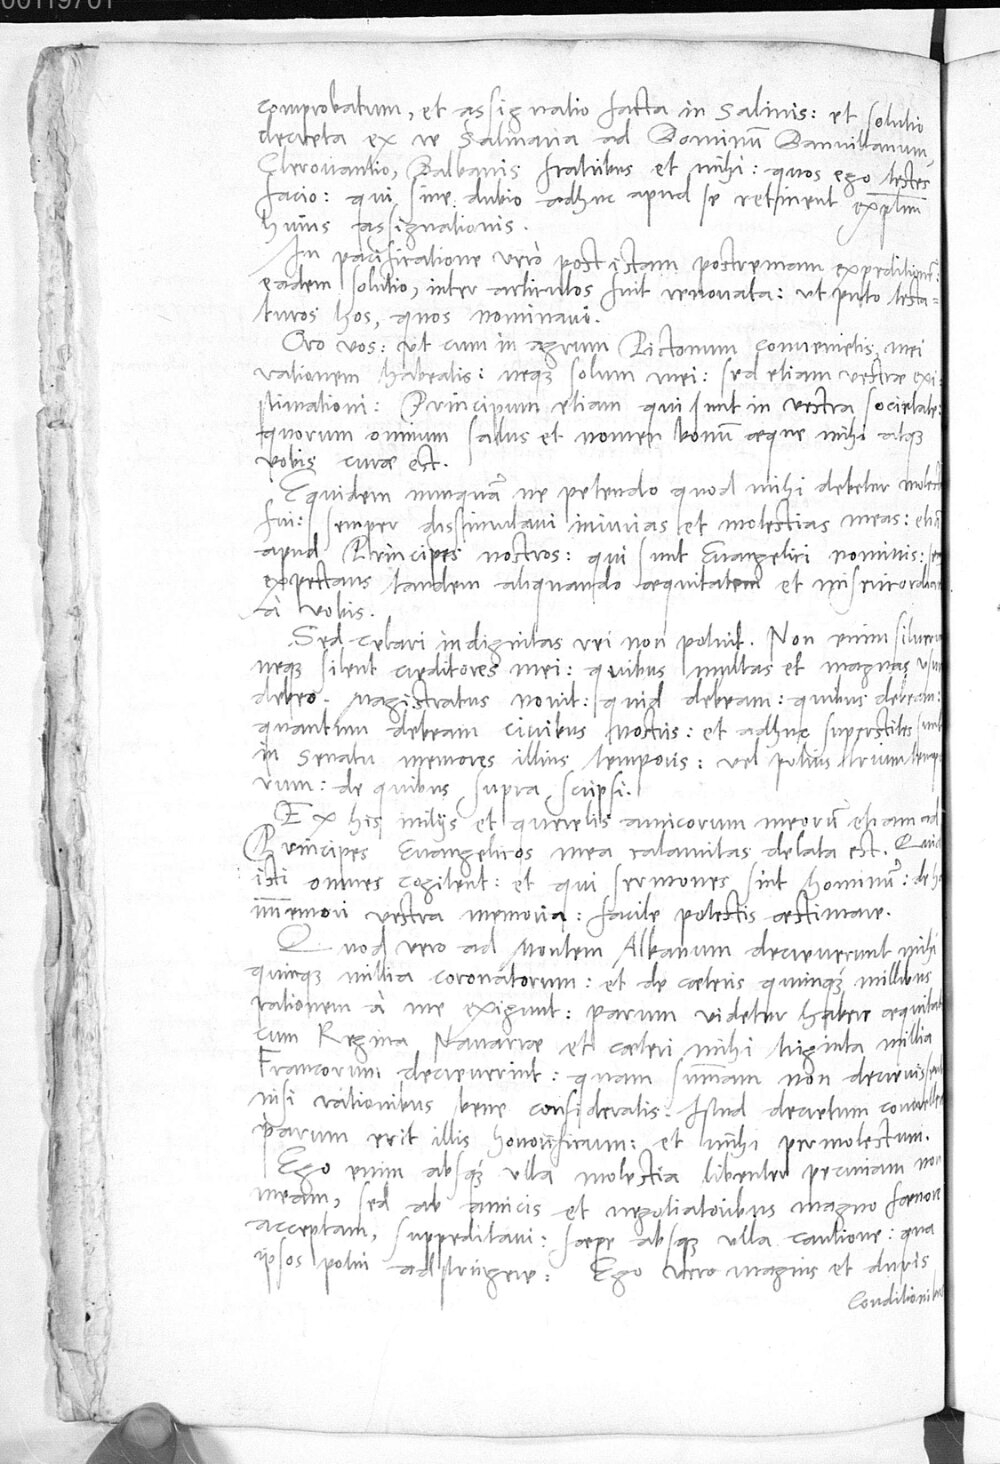 00119701
comprobatum, et assignatio facta in Salinis: et solutio
decreta ex re Salinaria ad Dominū Banvillanum
Clerovantio, Balbanis fratribus et mihi: quos ego testes
facio: qui sine dubio adhuc apud se retinent exp̄lum
huius assignationis.
In pacificatione verò post istam postremam expeditionē:
eadem solutio, inter articulos fuit renovata: ut puto testa=
turos hos, quos nominavi.
Oro vos: ut cum in agrum Pictonum convenietis, mei
rationem habeatis: neqꝫ solum mei: sed etiam vestræ exi-
stimationi: Principum etiam qui sunt in vestra societate:
quorum omnium salus et nomen bonū æque mihi atqꝫ
vobis curæ est.
Equidem nunquā ne petendo quod mihi debetur molestus
fui: semper dissimulavi iniurias et molestias meas: etiā
apud Principes nostros: qui sunt Evangelici nominis:
expectans tandem aliquando æquitatem et misericordiam
à vobis.
Sed celari indignitas rei non potuit. Non enim siluerunt
neqꝫ silent creditores mei: quibus multas et magnas
debeo. Magistratus novit: quid debeam: quibus debeam:
quantum debeam civibus nostris: et adhuc superstites sunt
in Senatu memores illius temporis: vel potius trium
rum: de quibus supra scripsi.
Ex his initijs et querelis amicorum meorū etiam ad
Principes Evangelicos mea calamitas delata est. Quid
isti omnes cogitent: et qui sermones sint hominū: de
im̄emori vestra memoria: facile potestis æstimare.
Quod vero ad Montem Albanum decreverunt mihi
quinqꝫ millia coronatorum: et de cæteris quinqꝫ millibus
rationem à me exigunt: parum videtur habere æquitatis
cum Regina Navarræ et cæteri mihi triginta millia
Francorum decreverint: quam sum̄am non decrevissent
nisi rationibus bene consideratis. Istud decretum convellere
parum erit illis honorificum: et mihi permolestum.
Ego enim absqꝫ ulla molestia libenter pecuniam non
meam, sed ab amicis et negotiatoribus magno fænore
acceptam, suppeditavi: sæpe absqꝫ ulla cautione: qua
ipsos potui adstringere: Ego vero magnis et duris
Conditionibus